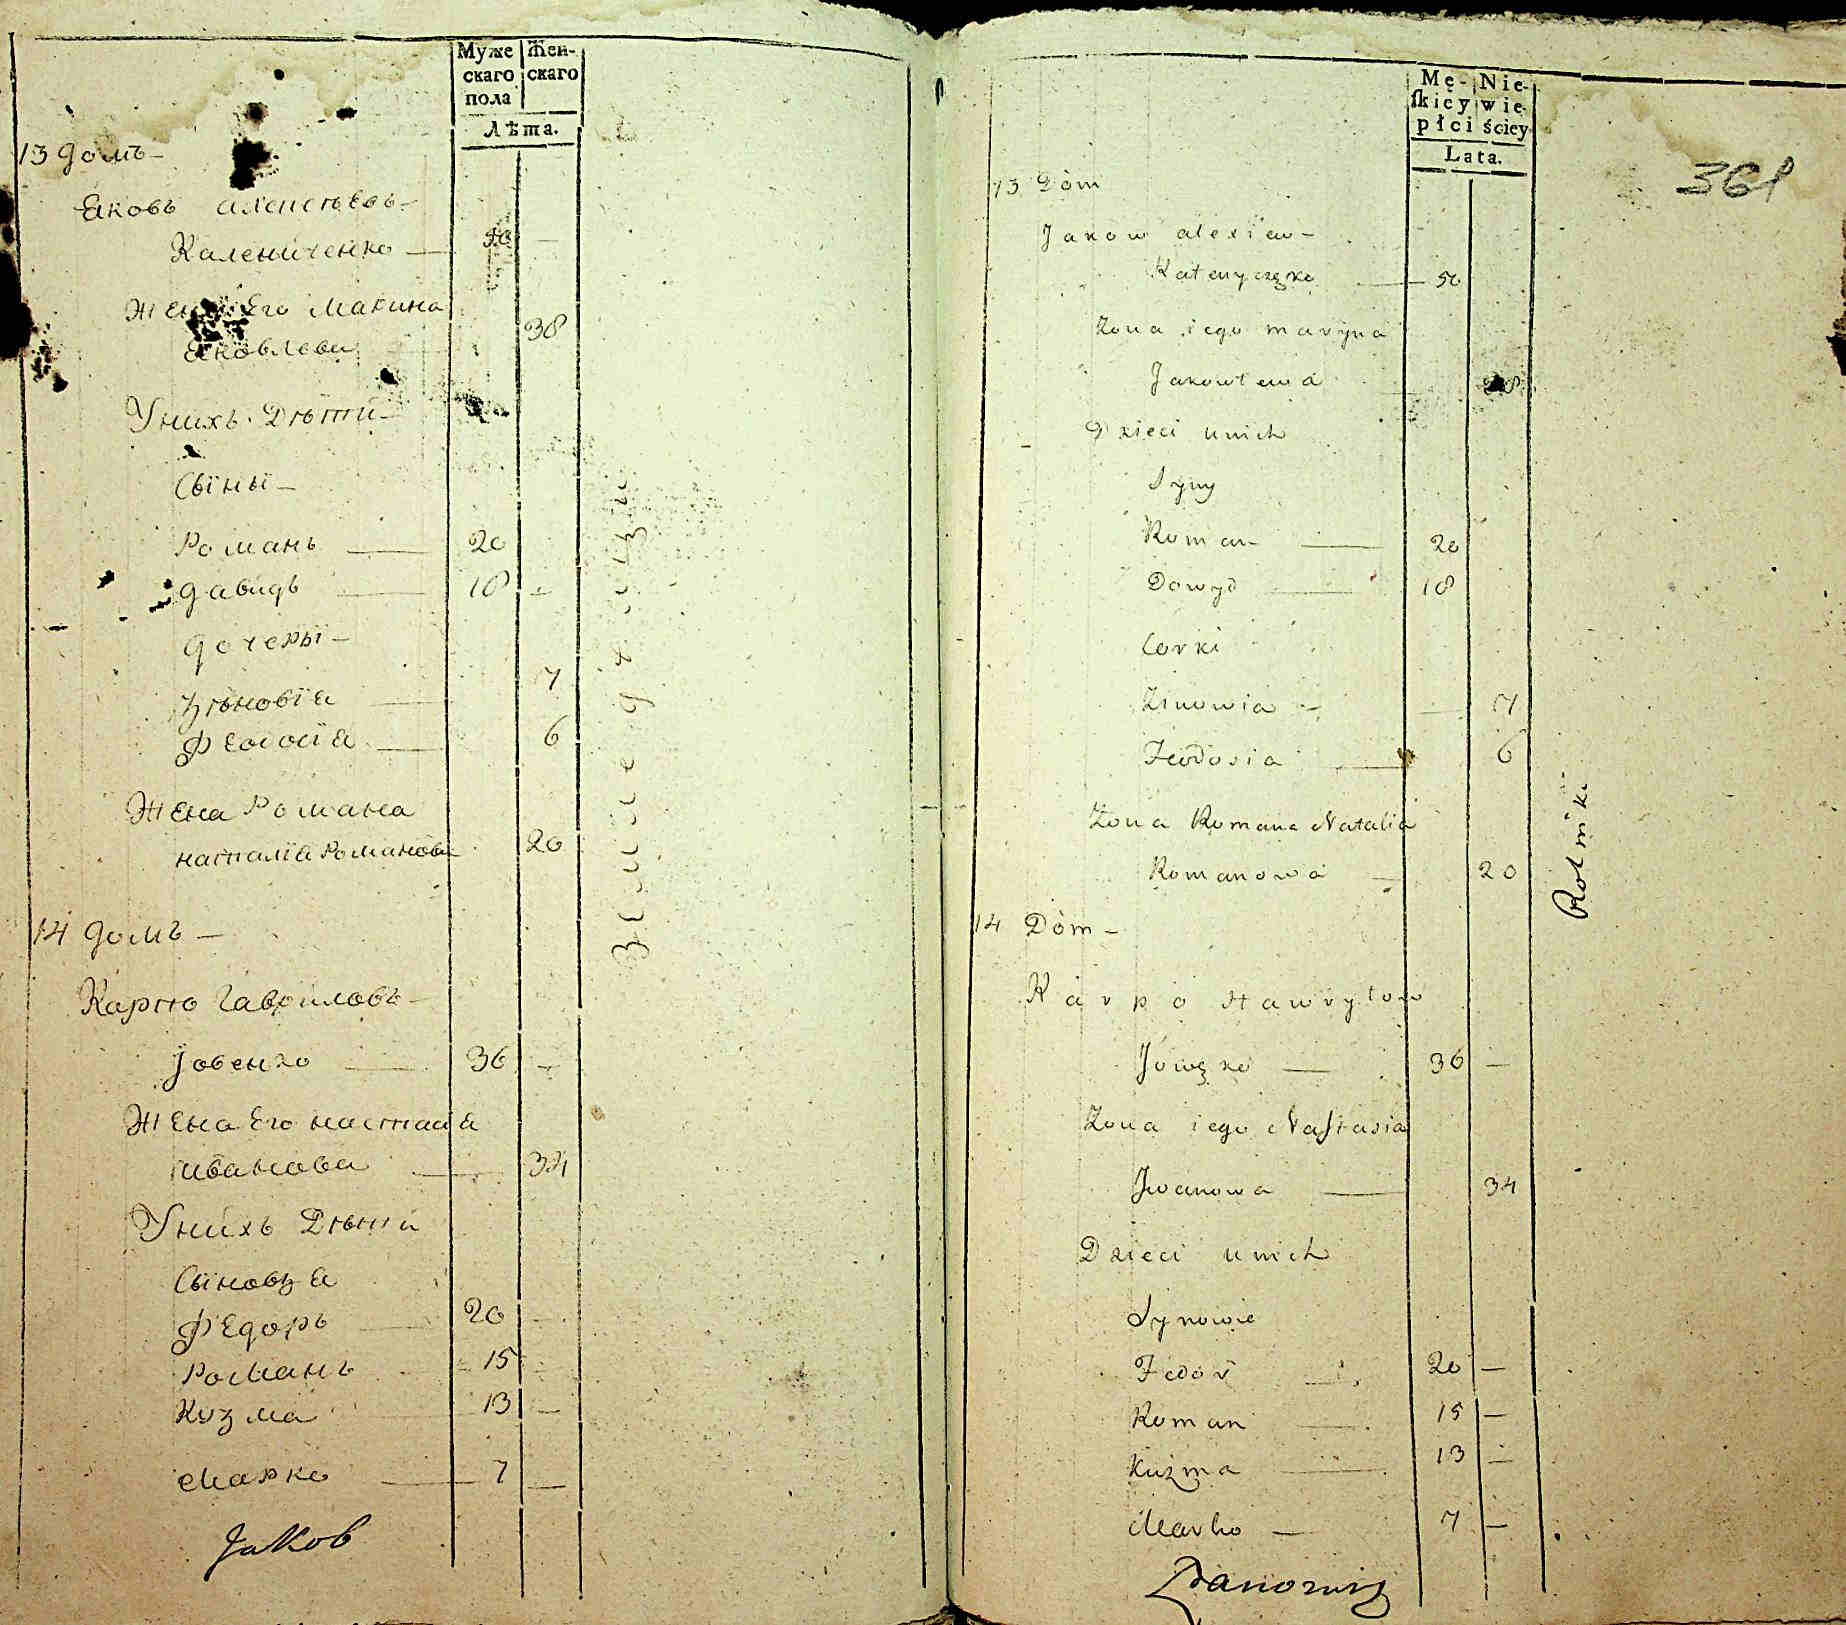 Муже
скаго
пола
Жен-
скаго
Лѣта.
13 домъ -
Яковъ Алексѣевъ -
Каленыченко — 50 —
Жена Его Марина
Яковлева 38
У нихъ Дѣти -
Сыны -
Романъ — 20
Давидъ — 18 -
Дочеры -
Зѣновія — 7
Феодосія — 6
Жена Романа
Наталія Романова 20
14 домъ -
Карпо Гавриловъ -
Іовенко — 36 -
Жена Его Настасія
Иванова — 34
У нихъ Дѣти
Сыновья
Федоръ — 20 -
Романъ - 15 -
Кузма — 13 -
Марко — 7 —
Jakob
Земледѣльцы
Mę-
skiey
płci
Nie-
wie-
ściey
Lata.
361
13 Dòm
Jakow Alexiew -
Kalenyczęko — 50
Żona iego Maryna
Jakowlewa 38
Dzieci u nich
Syny
Roman — 20
Dawyd — 18
Corki
Zinowia - — 7
Feodosia — 6
Żona Romana Natalia
Romanowa — 20
14 Dòm -
Karpo Hawryłow
Jowęko — 36 —
Żona iego Nastasia
Iwanowa — 34
Dzieci u nich
Synowie
Fedor — 20 —
Roman — 15 —
Kuzma — 13 —
Marko — 7 —
Rolniki